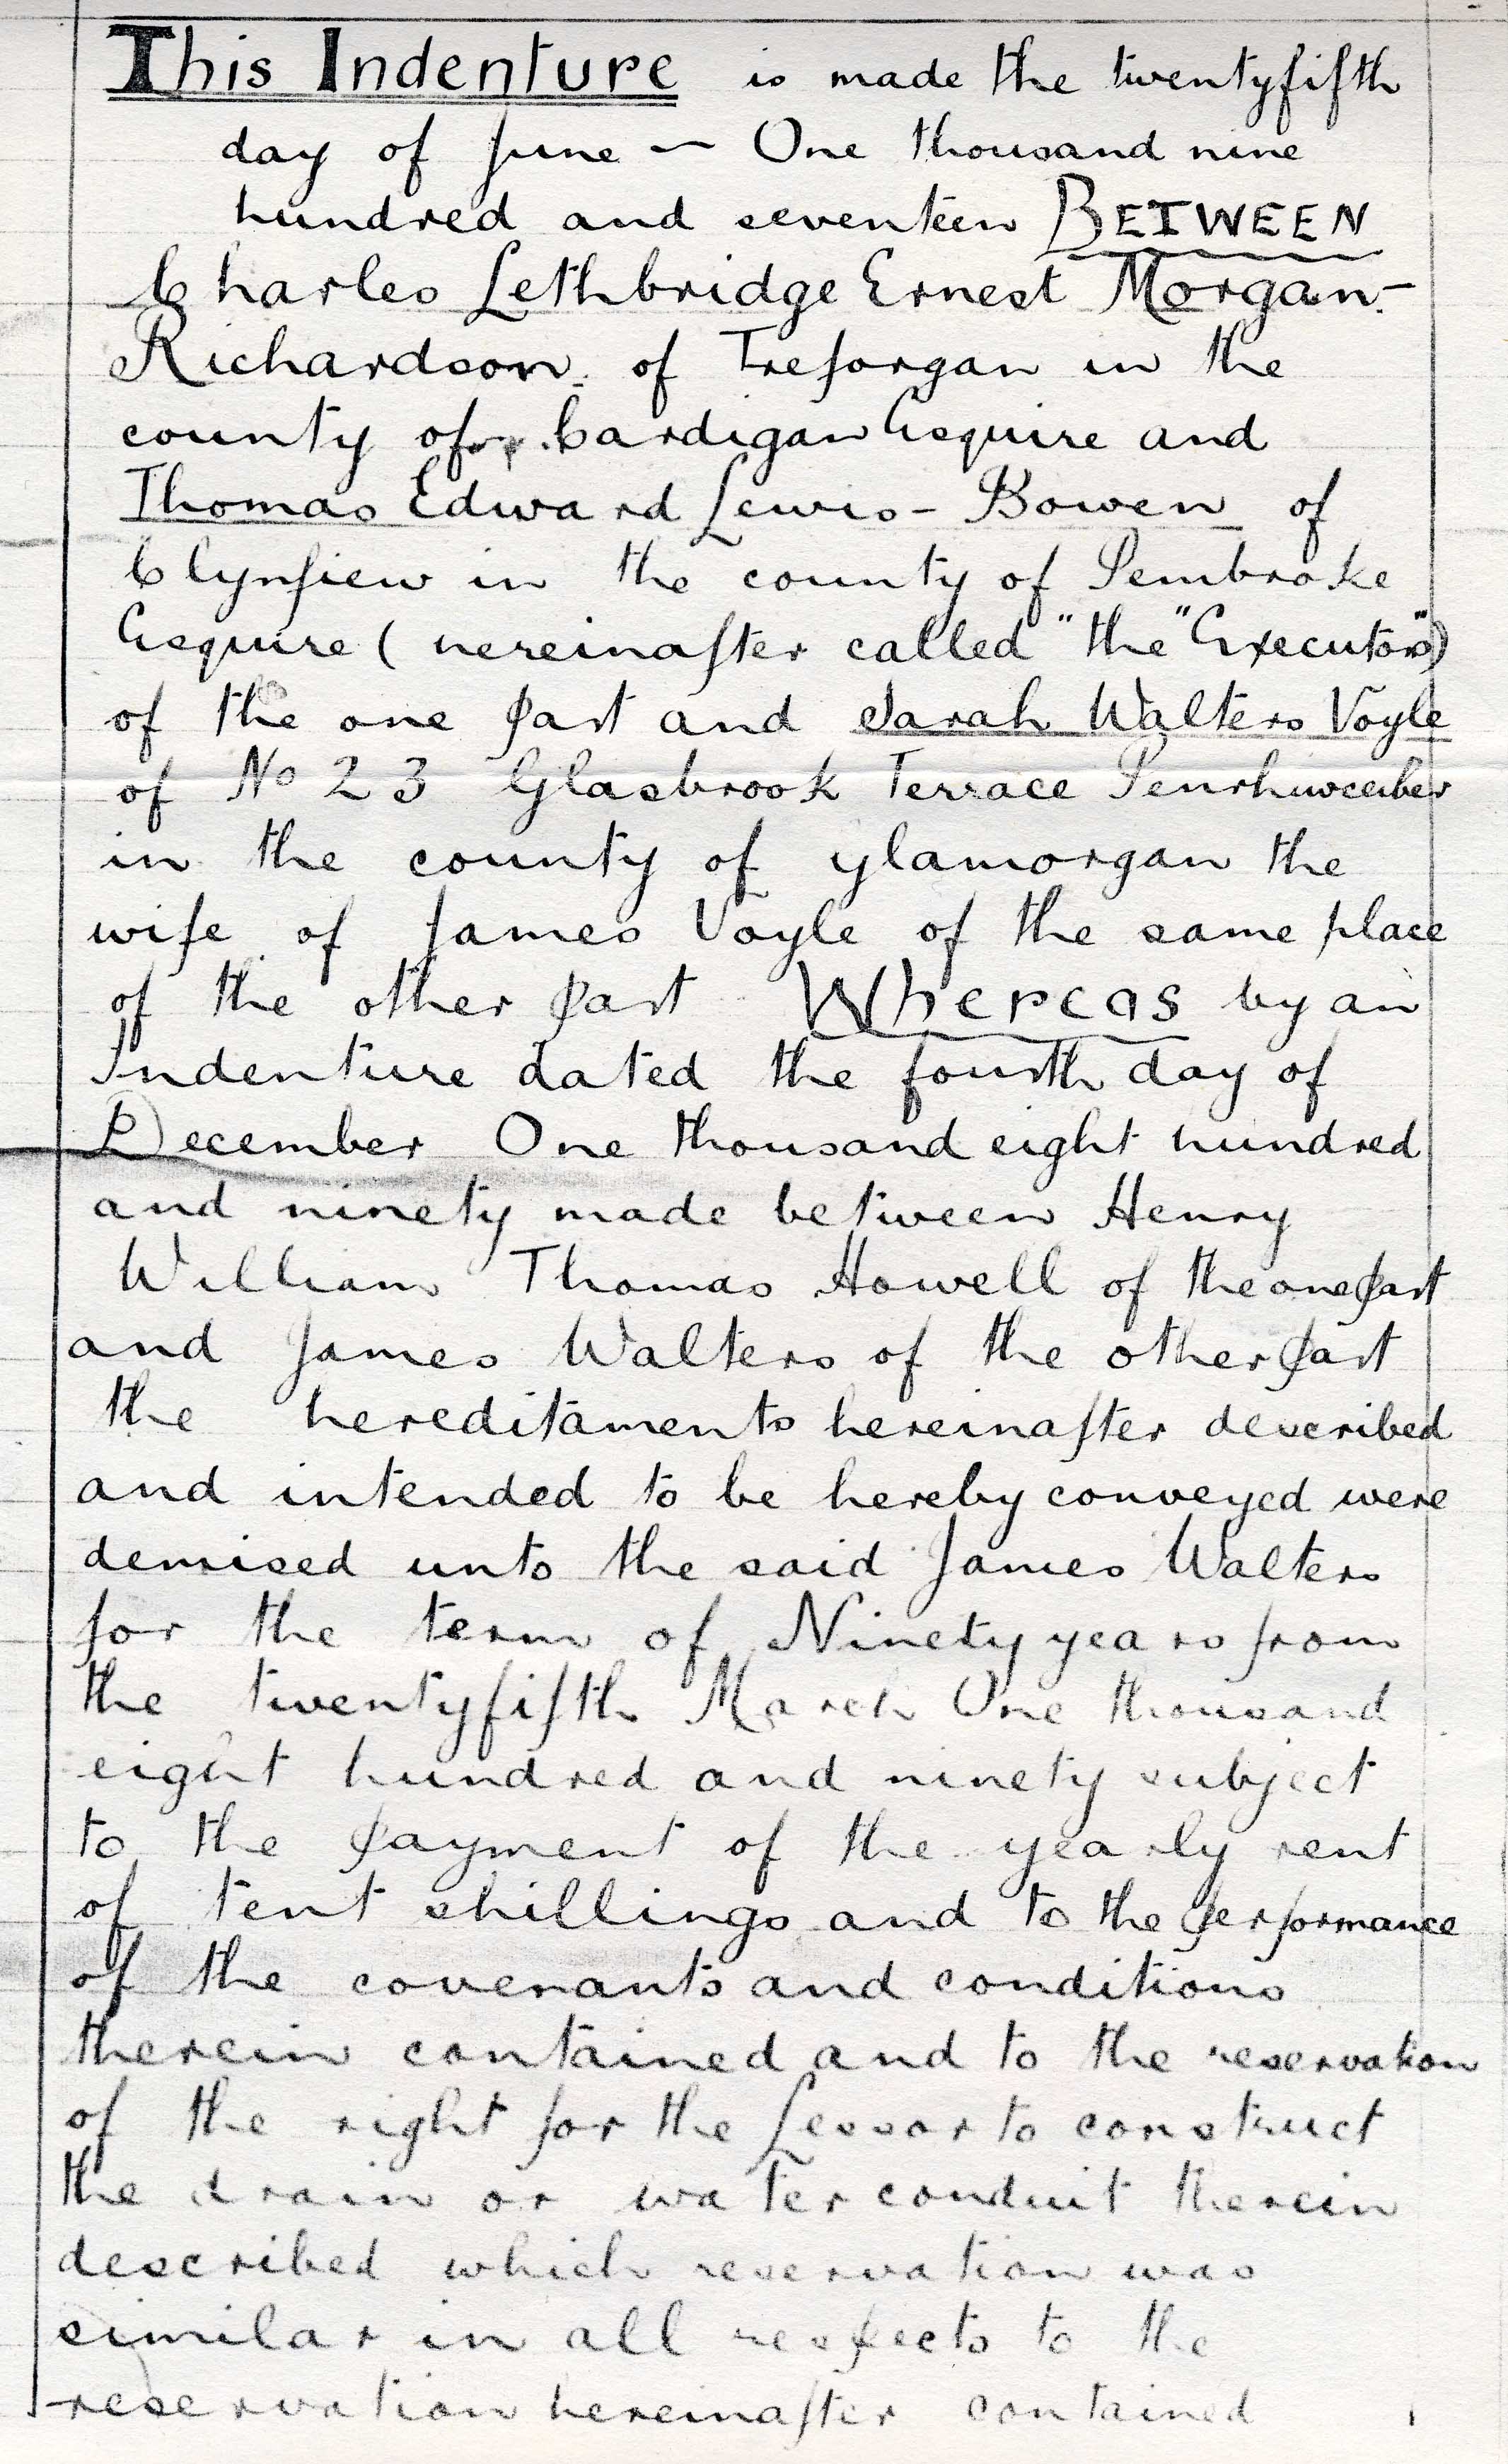 This Indenture is made the twentyfifth
day of June — One thousand nine
hundred and seventeen BETWEEN
Charles Lethbridge Ernest Morgan-
Richardson of Treforgan in the
county of Cardigan Esquire and
Thomas Edward Lewis-Bowen of
Clynfiew in the county of Pembroke
Esquire (hereinafter called "the "Executors")
of the one part and Sarah Walters Voyle
of No 23 Glasbrook Terrace Penrhiwceiber
in the county of Glamorgan the
wife of James Voyle of the same place
of the other part Whereas by an
Indenture dated the fourth day of
December One thousand eight hundred
and ninety made between Henry
William Thomas Howell of the one part
and James Walters of the other part
the hereditaments hereinafter described
and intended to be hereby conveyed were
demised unto the said James Walters
for the term of Ninety years from
the twentyfifth March One thousand
eight hundred and ninety subject
to the payment of the yearly rent
of tent shillings and to the performance
of the covenants and conditions
therein contained and to the reservation
of the right for the Lessor to construct
the drain or water conduit therein
described which reservation was
similar in all respects to the
reservation hereinafter contained